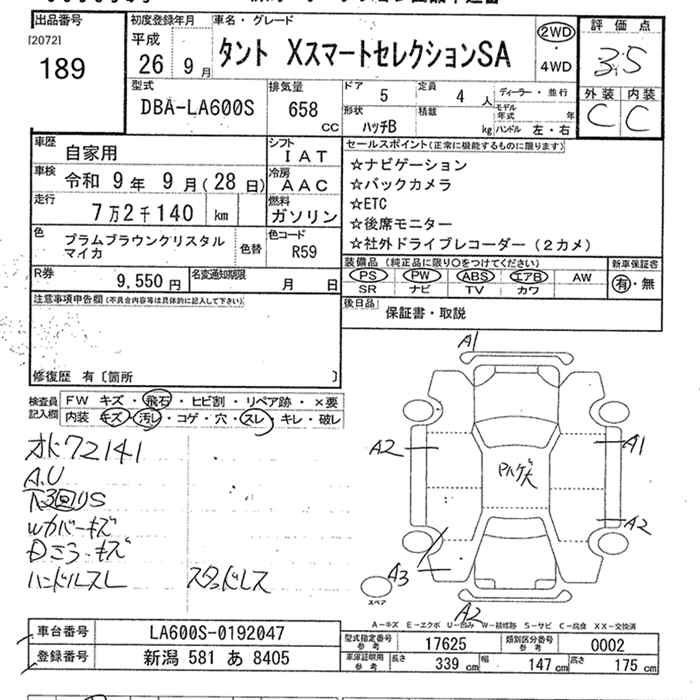 出品番号
[2072]
189
初度登録年月
平成
26 9月
車名・グレード
タント XスマートセレクションSA
2WD
・
4WD
評価点
3.5
外装 内装
C C
型式
DBA-LA600S
排気量
658
cc
ドア 5
定員 4人
形状 ハッチB
積載 kg
ディーラー・並行
モデル年式 年
ハンドル 左・右
車歴 自家用
シフト IAT
車検 令和 9年 9月(28日)
冷房 AAC
走行 7万2千140 km
燃料 ガソリン
色 プラムブラウンクリスタル
マイカ
色替
色コード R59
R券 9,550円
名変通知期限 月 日
セールスポイント(正常に機能するものに限ります)
☆ナビゲーション
☆バックカメラ
☆ETC
☆後席モニター
☆社外ドライブレコーダー(2カメ)
装備品(純正品に限り○をつけてください)
PS PW ABS エアB AW
SR ナビ TV カワ
新車保証書
有・無
後日品
保証書・取説
注意事項申告欄(不具合内容等は具体的に記入して下さい)
修復歴 有〔箇所 〕
検査員
記入欄
FW キズ・飛石・ヒビ割・リペア跡・×要
内装 キズ・汚レ・コゲ・穴・スレ・キレ・破レ
72141
A.U
Wカバーキズ
ハンドルスレ
スタッドレス
A1
A2
A1
A2
A3
A2
スペア
A－キズ E－エクボ U－凹み W－補修跡 S－サビ C－腐食 XX－交換済
車台番号 LA600S-0192047
登録番号 新潟 581 あ 8405
型式指定番号
参考
17625
類別区分番号
参考
0002
車庫証明用
参考
長さ 339 cm
幅 147 cm
高さ 175 cm